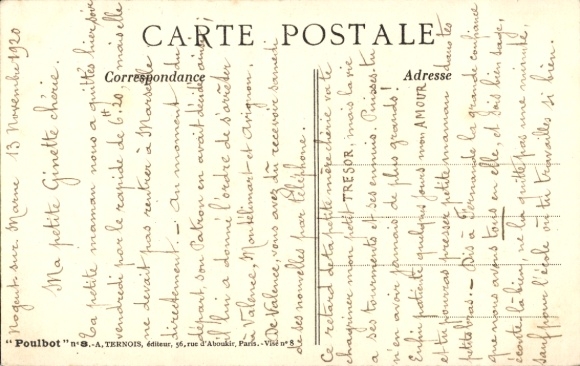 CARTE POSTALE
Correspondance
Adresse
Nogent sur Marne 13 Novembre 1920
Ma petite Ginette chérie.
Ta petite maman nous a quittés hier soir
vendredi par le rapide de 6ʰ20, mais elle
ne devait pas rentrer à Marseille
directement - Au moment du
départ, son Patron en avait décidé ainsi
il lui a donné l'ordre de s'arrêter
à Valence, Montélimart et Avignon.
De Valence, vous avez dû recevoir samedi
de ses nouvelles par téléphone.
Ce retard de ta petite mère chérie va te
chagriner mon petit TRESOR, mais la vie
a ses tourments et ses ennuis. Puisses-tu
n'en avoir jamais de plus grands!
Enfin patiente quelques jours mon AMOUR
et tu pourras presser petite maman dans tes
petits bras. - Dis à Fernande la grande confiance
que nous avons tous en elle, et sois bien sage,
écoute-la bien, ne la quitte pas une minute,
sauf pour l'école où tu travailles si bien.
"Poulbot" nº 8. - A. TERNOIS, éditeur, 56, rue d'Aboukir, Paris. - Visé nº 8